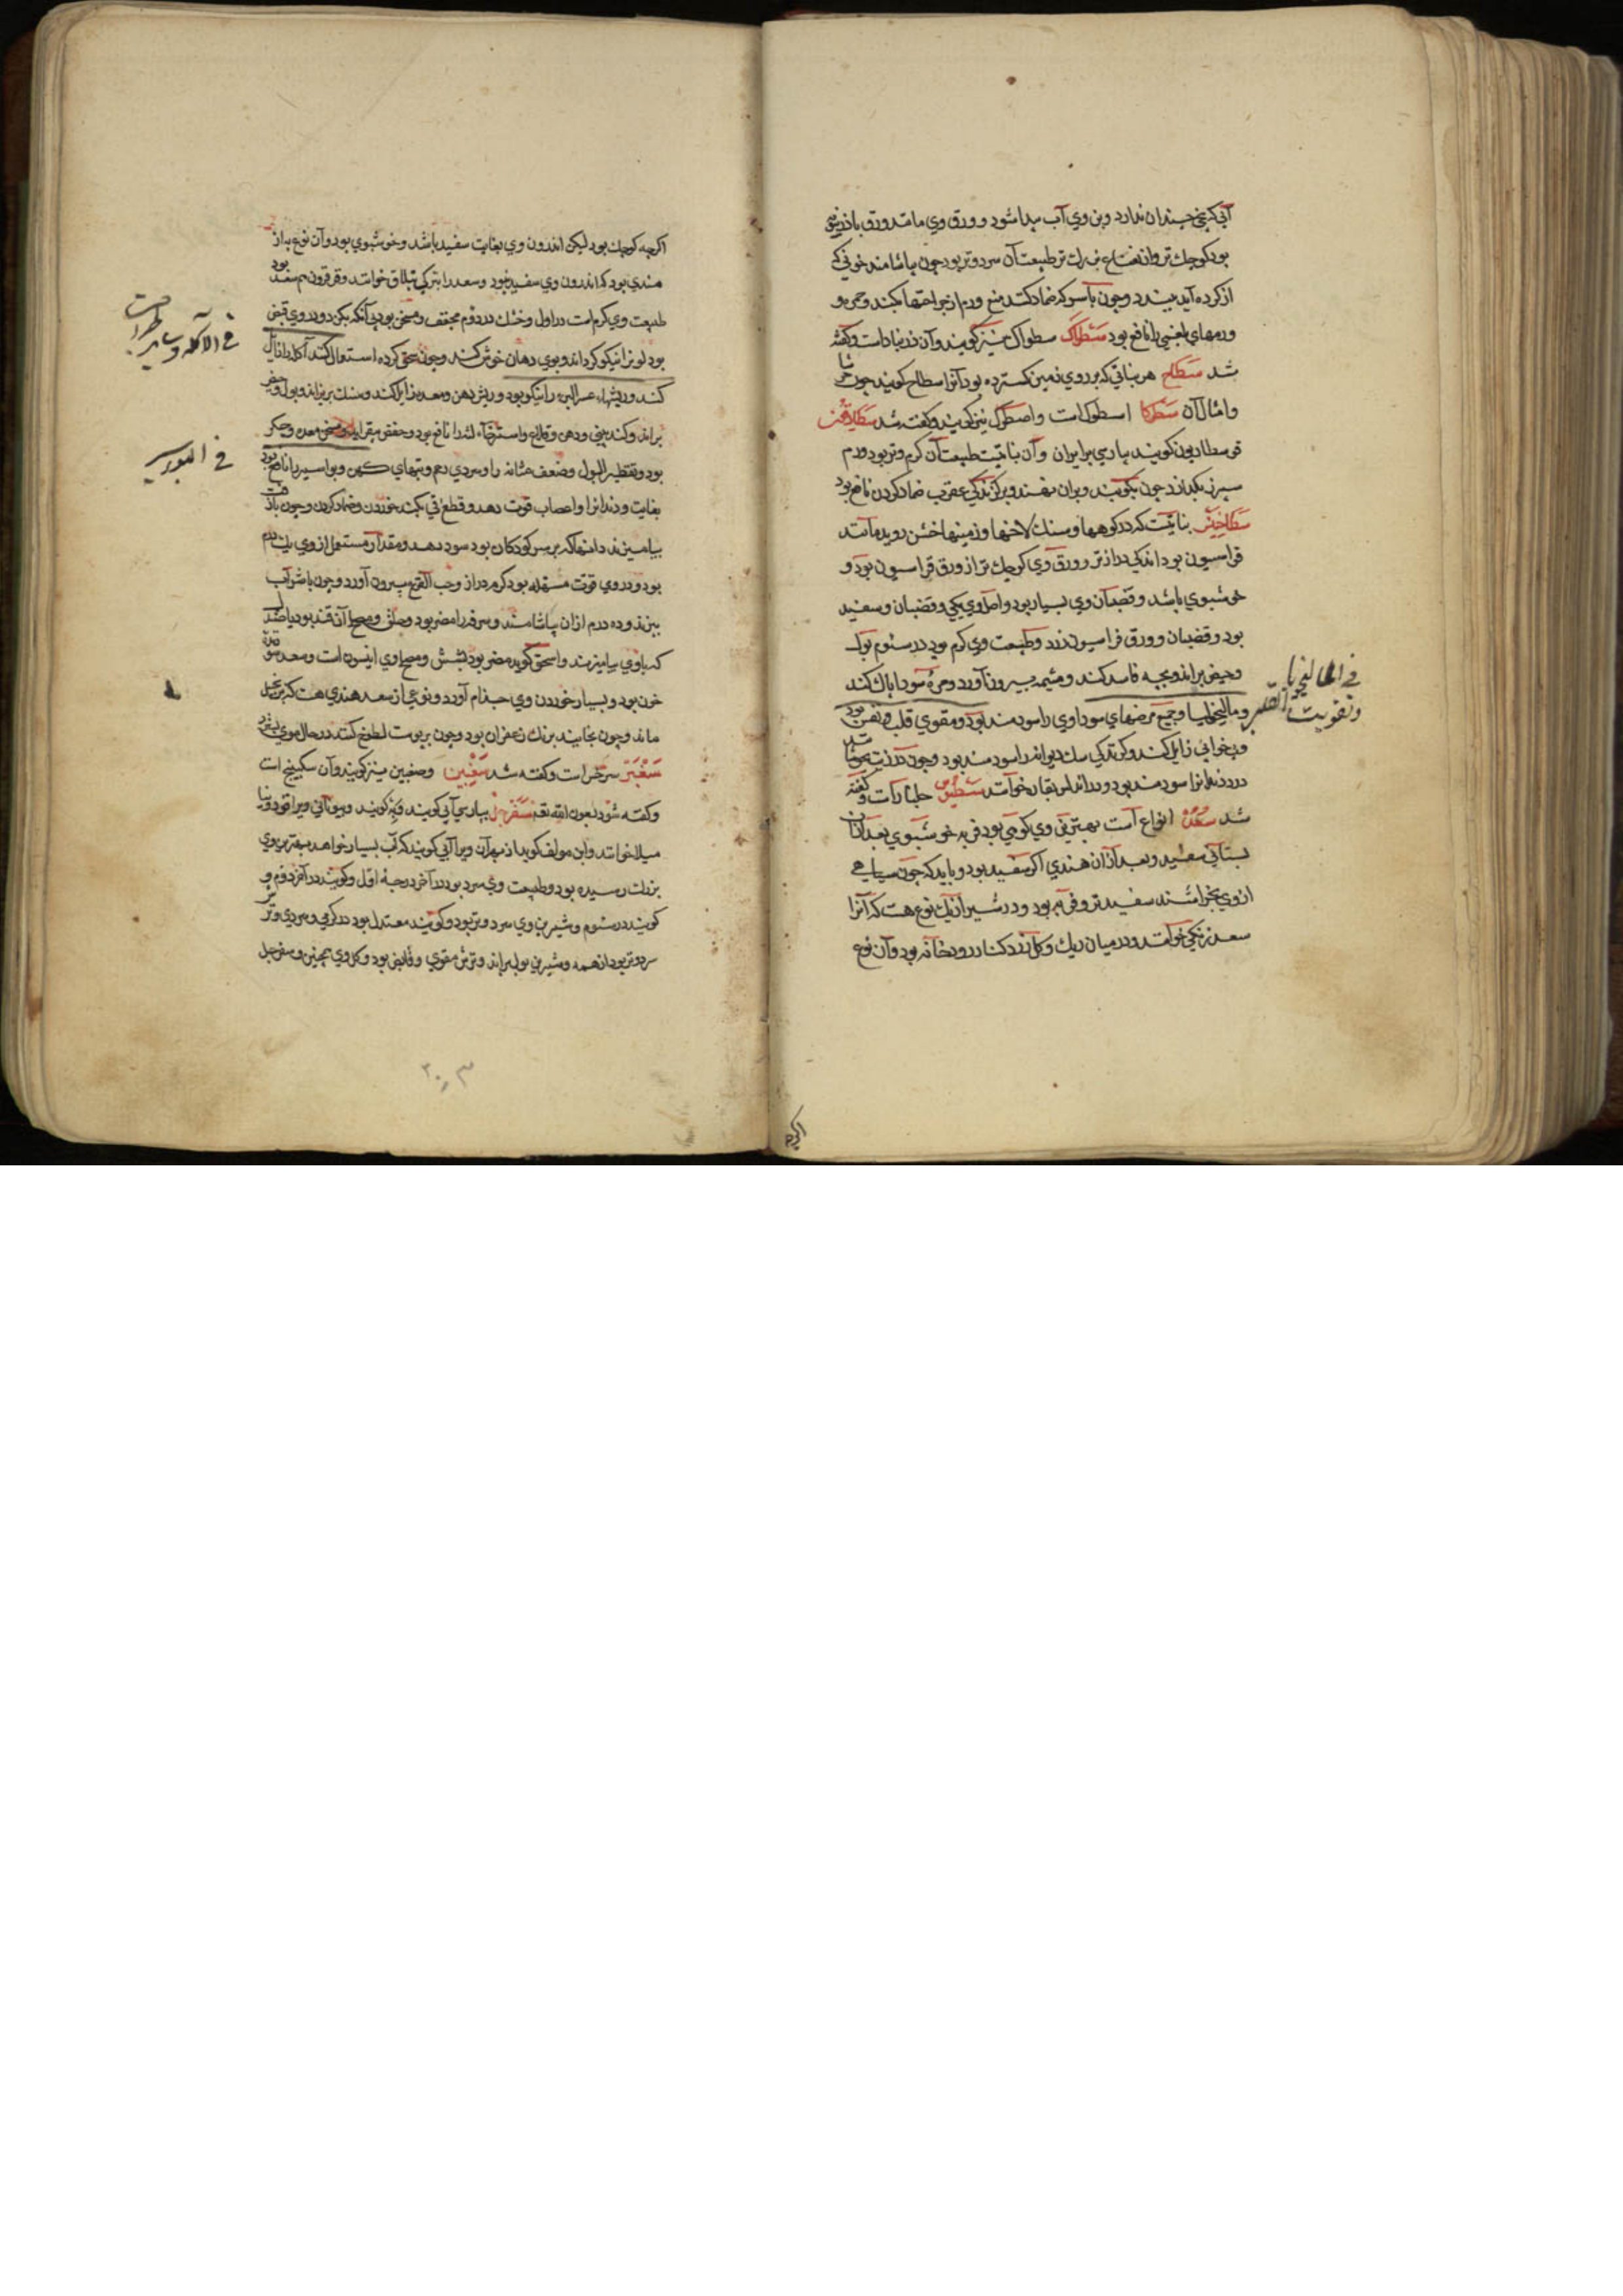 آبی که بیخ چندان ندارد وبن وي آب پیدا شود و ورق وي مانند ورق باذرنبو
بود کوچك تر واز نعناع بزرك تر طبیعت آن سرد و تر بود چون بیاشامند خونی که
از کرده آید ببندد وچون با سرکه ضماد کنند منع ورم از جراحتها بکند وحمره و
ورمهاي بلغمي را نافع بود سطراك سطواك نیز کویند وآن زرنباد است وکفته
شد سطاح هر نباتي که بر روي زمین کسترده بود آنرا سطاح کویند چون
وامثال آن سطرکا اسطرك است واصطرك نیز کویند وکفته شد
کویند بپارسي وآن نباتیست طبیعت آن کرم وتر بود ورم
سپرز بکدازد چون بکوبند وبران نهند وبر کزندکی عقرب ضماد کردن نافع بود
نباتیست که در کوهها وسنك لاخها وزمینها خشن روید مانند
فراسیون بود اندکی درازتر و ورق وي کوچك تر از ورق فراسیون بود و
خوشبوي باشد وقضبان وي بسیار بود واصل وي یکی وقضبان وسفید
بود وقضبان و ورق فراسیون زرد وطبیعت وي کرم بود در سئوم بول
وحیض براند وبچه فاسد کند ومشیمه بیرون آورد ومره سودا پاك کند
ومالیخولیا وجمیع مرضهاي سوداوي را سودمند بود ومقوي قلب ونفس بود
وبدخوابي زایل کند وکزندکي سك دیوانه را سودمند بود وچون در زیت بجوشانند
درد دندانرا سودمند بود ودر اندلس خوانند
شد سعد انواع است بهترین وي کوفی بود فربه خوشبوي بعد ازان
بستاني سفید وبعد ازان هندي اکر سفید بود وباید که چون سیاهي
از وي بخراشند سفیدتر وفربه بود ودر شیراز یك نوع هست که آنرا
سعد زنکی خوانند ودر میان ریك وکل نزد کنار رودخانه بود وآن نوع
في المالیخولیا
وتقویت القلب
اکرچه
اکرچه کوچك بود لیکن اندرون وي بغایت سفید باشد وخوشبوي بود وآن نوع به از
هندي بود که اندرون وي سفید بود وسعد را بترکي خوانند
طبیعت وي کرم است در اول وخشك در دوم مجفف ومسخن بود بي آنکه بکزد ودر وي قبض
بود لونرا نیکو کرداند وبوي دهان خوش کند وچون سحق کرده استعمال کنند آکله را زایل
کند وریشهاء عسر البرء را نیکو بود وریش دهن ومعده زایل کند وسنك بریزاند وبول وحیض
براند وکند بیني ودهن وقلاع واسترخاء لثه را نافع بود ومسخن معده وجکر
بود وتقطیر البول وضعف مثانه را وسردي رحم وتبهاي کهن وبواسیر را نافع بود
بغایت ودندانرا واعصاب قوت دهد وقطع قي بکند خوردن وضماد کردن وچون با زفت
بیامیزند دانها که بر سر کودکان بود سود دهد ومقدار مستعمل از وي یك درم
بود ودر وي قوت مسهله بود کرم دراز وحب القرع بیرون آورد وچون با شراب
بپزند وده درم ازان بیاشامند وسرفه را مضر بود وحلق ومصلح آن قند بود یا صندل
که با وي بیامیزند واسحق کوید مضر بود بشش ومصلح وي انیسون است وسعد
خون بود وبسیار خوردن وي جذام آورد ونوعي از سعد هندي هست که بزنجبیل
ماند وچون بخایند برنك زعفران بود وچون بر پوست لطوخ کنند در حال موي بسترد
سغبر سرخس است وکفته شد سغبین وصغبین نیز کویند وآن سکبینج است
وکفته شود بعون الله تعه سفرجل بپارسي آبي کویند وبه کویند وبیوناني
میلا خوانند وابن مولف کوید از بهر آن ویرا آبي کویند که آب بسیار خواهد بهترین وي
بزرك رسیده بود وطبیعت وي سرد بود در آخر درجه اول وکویند در آخر دوم و
کویند در سئوم وشیرین وي سرد وتر بود وکویند معتدل بود در کرمي وسردي وتر
سردتر بود از همه وشیرین بول براند وترش مقوي وقابض بود وکل وي همچنین وسفرجل
في الآکله وسایر الجراحت
في البواسیر